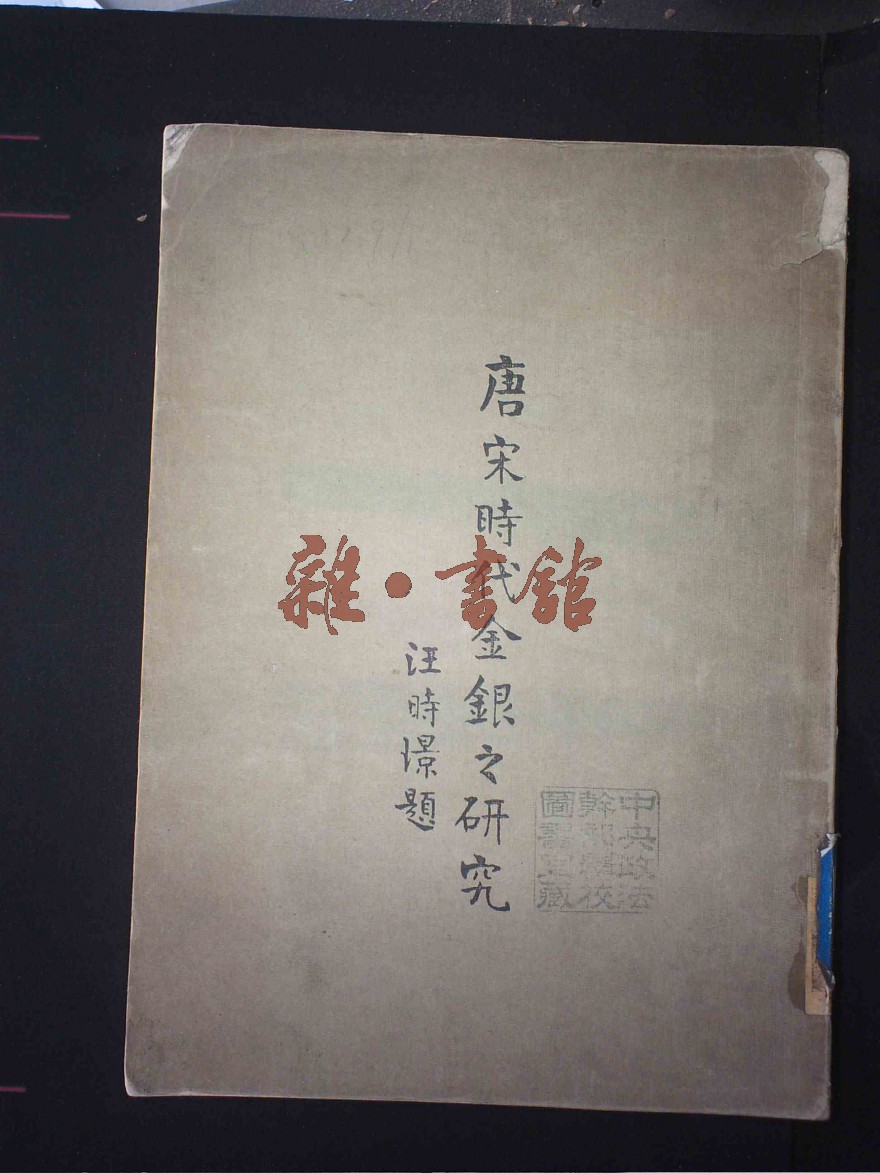 唐宋時代金銀之研究
汪時璟題
雜·書館
中央政法
幹部學校
圖書室藏